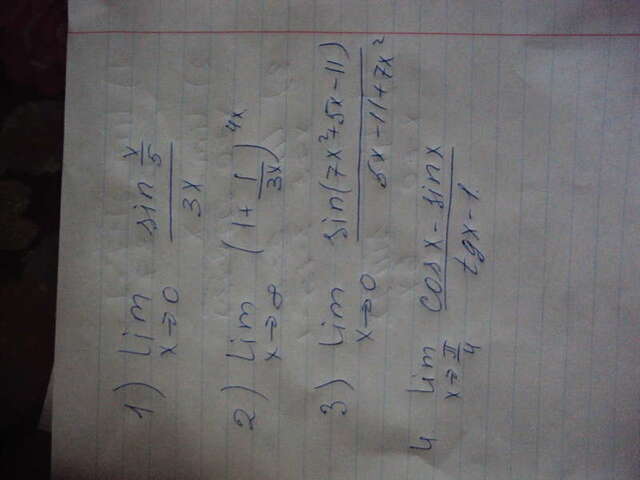 1) lim x→0 sin x/5 / 3x
2) lim x→∞ (1 + 1/3x)^4x
3) lim x→0 sin(7x²+5x-11) / 5x-11+7x²
4. lim x→π/4 cosx - sinx / tgx-1